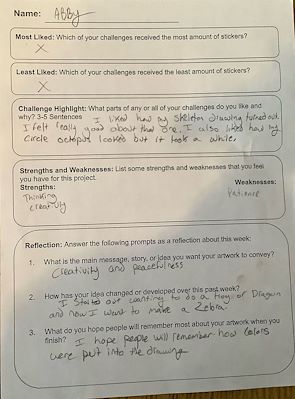 Name: ABBY
Most Liked: Which of your challenges received the most amount of stickers?
X
Least Liked: Which of your challenges received the least amount of stickers?
X
Challenge Highlight: What parts of any or all of your challenges do you like and
why? 3-5 Sentences I liked how my skeleton drawing turned out.
I felt really good about that one. I also liked how my
circle octopus looked but it took a while.
Strengths and Weaknesses: List some strengths and weaknesses that you feel
you have for this project.
Strengths: Weaknesses:
Thinking Patience
creativly
Reflection: Answer the following prompts as a reflection about this week:
1. What is the main message, story, or idea you want your artwork to convey?
Creativity and peacefulness
2. How has your idea changed or developed over this past week?
I started out wanting to do a of Dragon
and now I want to make a Zebra.
3. What do you hope people will remember most about your artwork when you
finish? I hope people will remember how colors
were put into the drawing